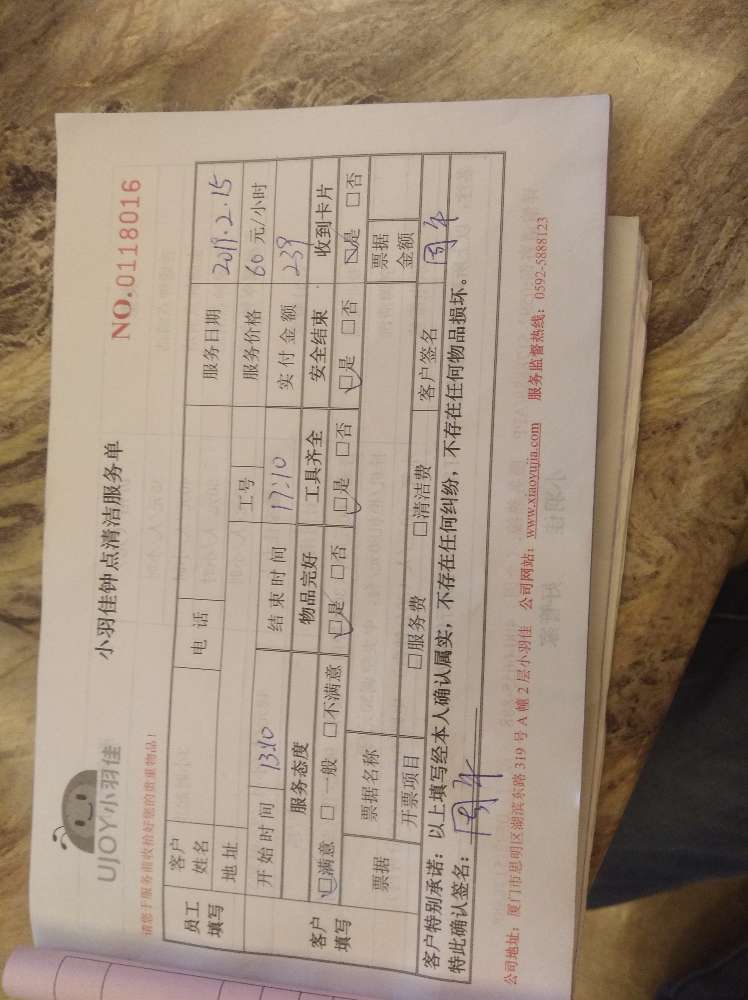 UJOY小羽佳
小羽佳钟点清洁服务单
NO.0118016
请您于服务前收拾好您的贵重物品！
员工填写 客户姓名 电话 服务日期 2019.2.15
地址 工号 服务价格 60 元/小时
开始时间 13:10 结束时间 17:10 实付金额 239
客户填写 服务态度 物品完好 工具齐全 安全结束 收到卡片
□满意 □一般 □不满意 □是 □否 □是 □否 □是 □否 □是 □否
票据 票据名称 票据金额
开票项目 □服务费 □清洁费 客户签名
客户特别承诺：以上填写经本人确认属实，不存在任何纠纷，不存在任何物品损坏。
特此确认签名：
公司地址：厦门市思明区湖滨东路319号A幢2层小羽佳 公司网站：www.xiaoyujia.com 服务监督热线：0592-5888123